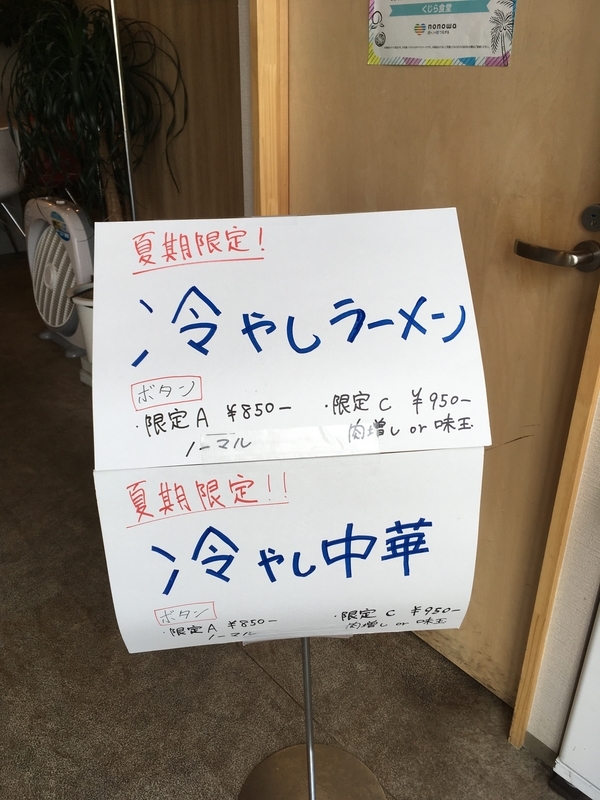 くじら食堂
nonowa
夏期限定!
冷やしラーメン
ボタン
・限定A ¥850-
ノーマル
・限定C ¥950-
肉増し or 味玉
夏期限定!!
冷やし中華
ボタン
・限定A ¥850-
ノーマル
・限定C ¥950-
肉増し or 味玉